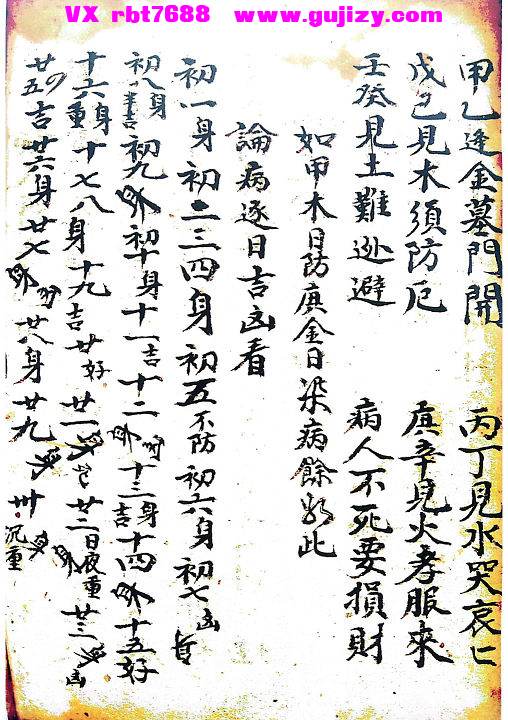 VX rbt7688 www.gujizy.com
甲乙逢金墓門開 丙丁見水哭哀亡
戊己見木須防厄 庚辛見火孝服來
壬癸見土難迯避 病人不死要損財
如甲木日防庚金日染病餘 此
論病逐日吉凶看
初一身 初二三四身 初五不防 初六身 初七凶
初八身 初九 初十身 十一吉 十二 十三身吉 十四 十五好
十六身重 十七八身 十九吉 廿好 廿一 廿二日夜重 廿三 凶
廿四五吉 廿六身 廿七 廿八身 廿九 卅 沉重